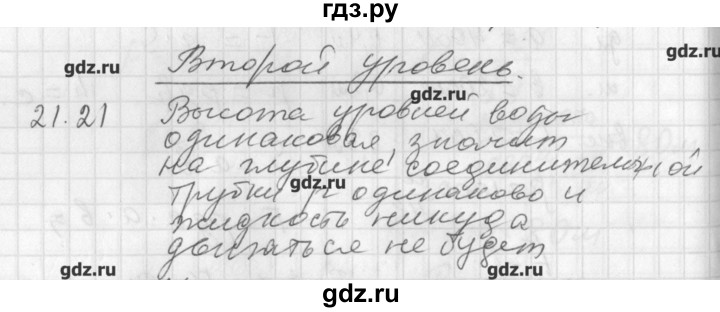 гдз.ру
Второй уровень.
gdz.ru
gdz.ru
21.21 Высота уровней воды
одинаковая, значит
на глубине соединительной
gdz.ru
трубки p одинаково и
жидкость никуда
двигаться не будет
gdz.ru
gdz.ru
gdz.ru